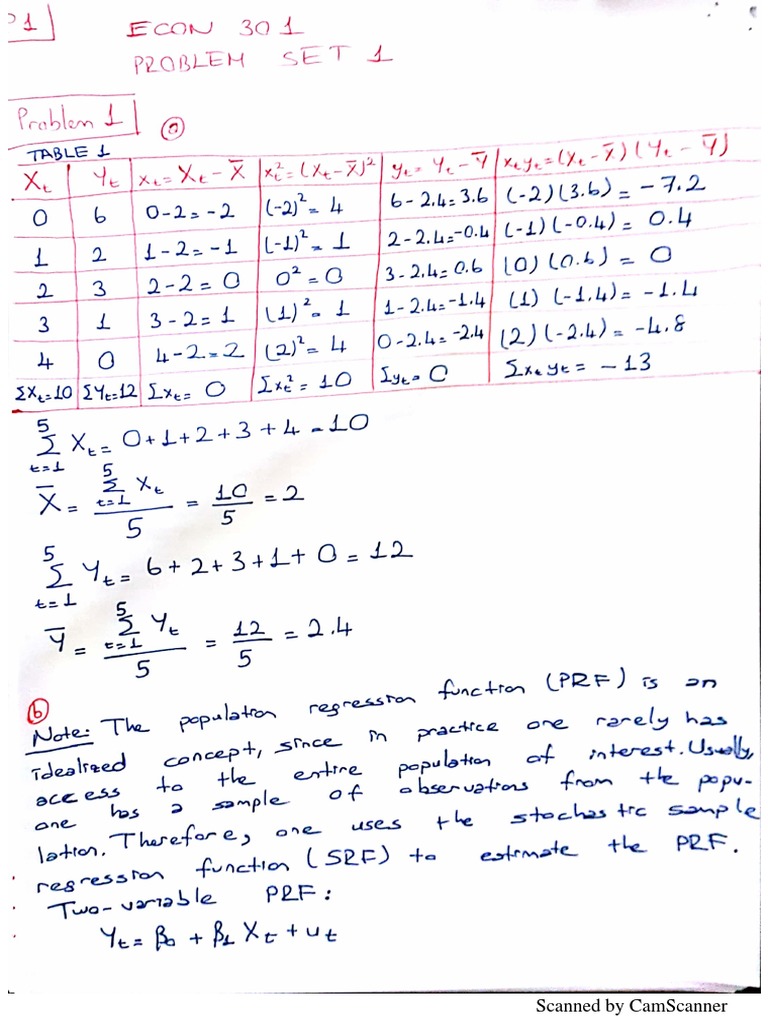 P1
ECON 301
PROBLEM SET 1
Problem 1 ⓐ
TABLE 1
Xₜ Yₜ xₜ = Xₜ - X̄ xₜ² = (Xₜ - X̄)² yₜ = Yₜ - Ȳ xₜyₜ = (Xₜ - X̄)(Yₜ - Ȳ)
0 6 0-2 = -2 (-2)² = 4 6 - 2.4 = 3.6 (-2)(3.6) = -7.2
1 2 1-2 = -1 (-1)² = 1 2 - 2.4 = -0.4 (-1)(-0.4) = 0.4
2 3 2-2 = 0 0² = 0 3 - 2.4 = 0.6 (0)(0.6) = 0
3 1 3-2 = 1 (1)² = 1 1 - 2.4 = -1.4 (1)(-1.4) = -1.4
4 0 4-2 = 2 (2)² = 4 0 - 2.4 = -2.4 (2)(-2.4) = -4.8
ΣXₜ=10 ΣYₜ=12 Σxₜ = 0 Σxₜ² = 10 Σyₜ = 0 Σxₜyₜ = -13
5 Σ t=1 Xₜ = 0+1+2+3+4 = 10
X̄ = 5 Σ t=1 Xₜ / 5 = 10/5 = 2
5 Σ t=1 Yₜ = 6+2+3+1+0 = 12
Ȳ = 5 Σ t=1 Yₜ / 5 = 12/5 = 2.4
ⓑ
Note: The population regression function (PRF) is an
idealized concept, since in practice one rarely has
access to the entire population of interest. Usually,
one has a sample of observations from the popu-
lation. Therefore, one uses the stochastic sample
regression function (SRF) to estimate the PRF.
Two-variable PRF:
Yₜ = β₀ + β₁ Xₜ + uₜ
Scanned by CamScanner